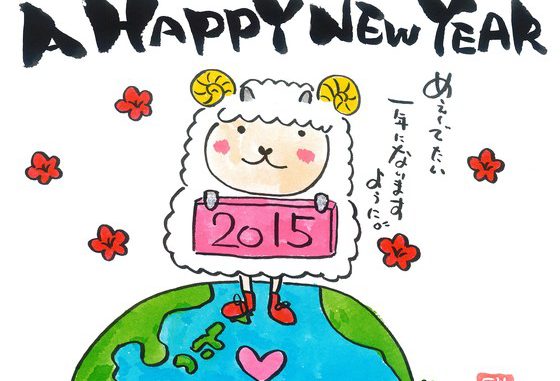 A HAPPY NEW YEAR
めぇ〜でたい
一年になります
ように。
2015